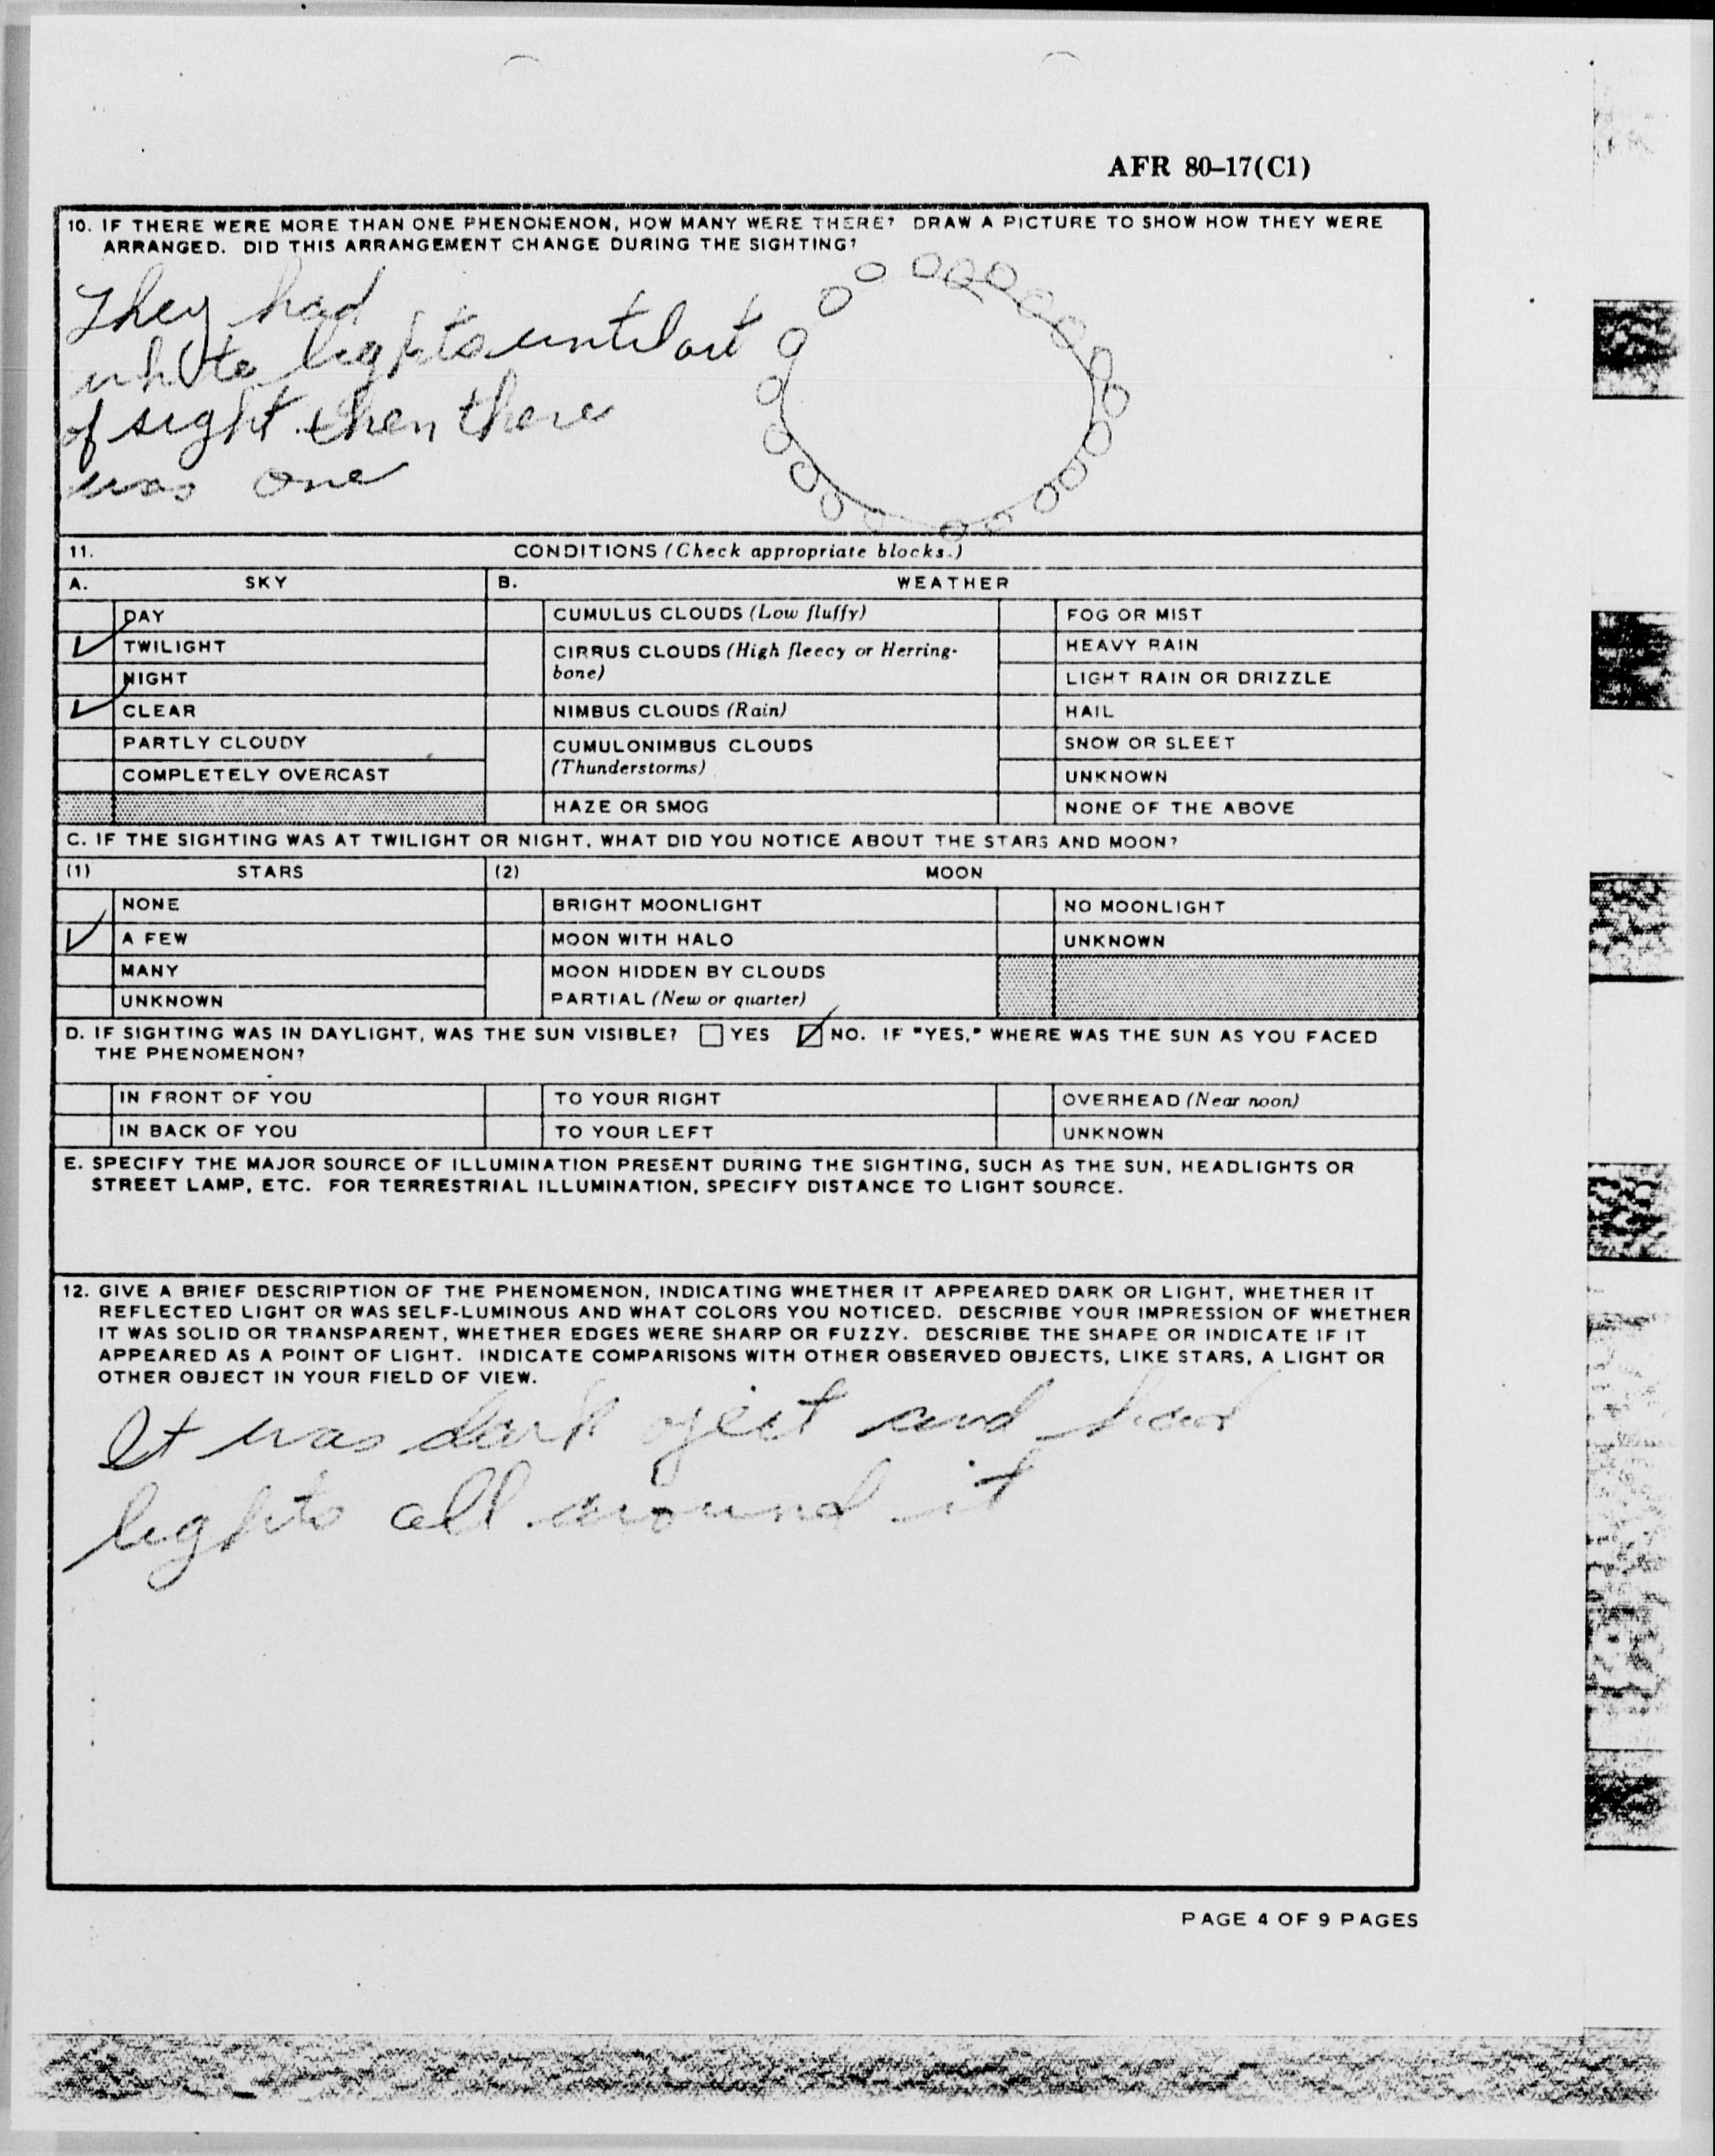 AFR 80-17(C1)
10. IF THERE WERE MORE THAN ONE PHENOMENON, HOW MANY WERE THERE? DRAW A PICTURE TO SHOW HOW THEY WERE
ARRANGED. DID THIS ARRANGEMENT CHANGE DURING THE SIGHTING?
They had
white lights until out
of sight. then there
was one
11. CONDITIONS (Check appropriate blocks.)
A. SKY B. WEATHER
DAY CUMULUS CLOUDS (Low fluffy) FOG OR MIST
TWILIGHT CIRRUS CLOUDS (High fleecy or Herring- HEAVY RAIN
NIGHT bone) LIGHT RAIN OR DRIZZLE
CLEAR NIMBUS CLOUDS (Rain) HAIL
PARTLY CLOUDY CUMULONIMBUS CLOUDS SNOW OR SLEET
COMPLETELY OVERCAST (Thunderstorms) UNKNOWN
HAZE OR SMOG NONE OF THE ABOVE
C. IF THE SIGHTING WAS AT TWILIGHT OR NIGHT, WHAT DID YOU NOTICE ABOUT THE STARS AND MOON?
(1) STARS (2) MOON
NONE BRIGHT MOONLIGHT NO MOONLIGHT
A FEW MOON WITH HALO UNKNOWN
MANY MOON HIDDEN BY CLOUDS
UNKNOWN PARTIAL (New or quarter)
D. IF SIGHTING WAS IN DAYLIGHT, WAS THE SUN VISIBLE? YES NO. IF "YES," WHERE WAS THE SUN AS YOU FACED
THE PHENOMENON?
IN FRONT OF YOU TO YOUR RIGHT OVERHEAD (Near noon)
IN BACK OF YOU TO YOUR LEFT UNKNOWN
E. SPECIFY THE MAJOR SOURCE OF ILLUMINATION PRESENT DURING THE SIGHTING, SUCH AS THE SUN, HEADLIGHTS OR
STREET LAMP, ETC. FOR TERRESTRIAL ILLUMINATION, SPECIFY DISTANCE TO LIGHT SOURCE.
12. GIVE A BRIEF DESCRIPTION OF THE PHENOMENON, INDICATING WHETHER IT APPEARED DARK OR LIGHT, WHETHER IT
REFLECTED LIGHT OR WAS SELF-LUMINOUS AND WHAT COLORS YOU NOTICED. DESCRIBE YOUR IMPRESSION OF WHETHER
IT WAS SOLID OR TRANSPARENT, WHETHER EDGES WERE SHARP OR FUZZY. DESCRIBE THE SHAPE OR INDICATE IF IT
APPEARED AS A POINT OF LIGHT. INDICATE COMPARISONS WITH OTHER OBSERVED OBJECTS, LIKE STARS, A LIGHT OR
OTHER OBJECT IN YOUR FIELD OF VIEW.
It was dark oject and had
lights all around it
PAGE 4 OF 9 PAGES